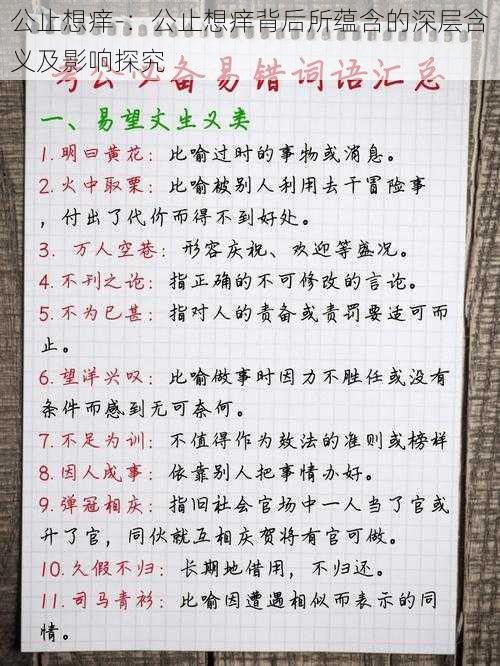 公止想痒-：公止想痒背后所蕴含的深层含
义及影响探究
考公必备易错词语汇总
一、易望文生义类
1.明日黄花：比喻过时的事物或消息。
2.火中取栗：比喻被别人利用去干冒险事
，付出了代价而得不到好处。
3. 万人空巷：形容庆祝、欢迎等盛况。
4.不刊之论：指正确的不可修改的言论。
5.不为已甚：指对人的责备或责罚要适可而
止。
6.望洋兴叹：比喻做事时因力不胜任或没有
条件而感到无可奈何。
7.不足为训：不值得作为效法的准则或榜样
8.因人成事：依靠别人把事情办好。
9.弹冠相庆：指旧社会官场中一人当了官或
升了官，同伙就互相庆贺将有官可做。
10.久假不归：长期地借用，不归还。
11.司马青衫：比喻因遭遇相似而表示的同
情。